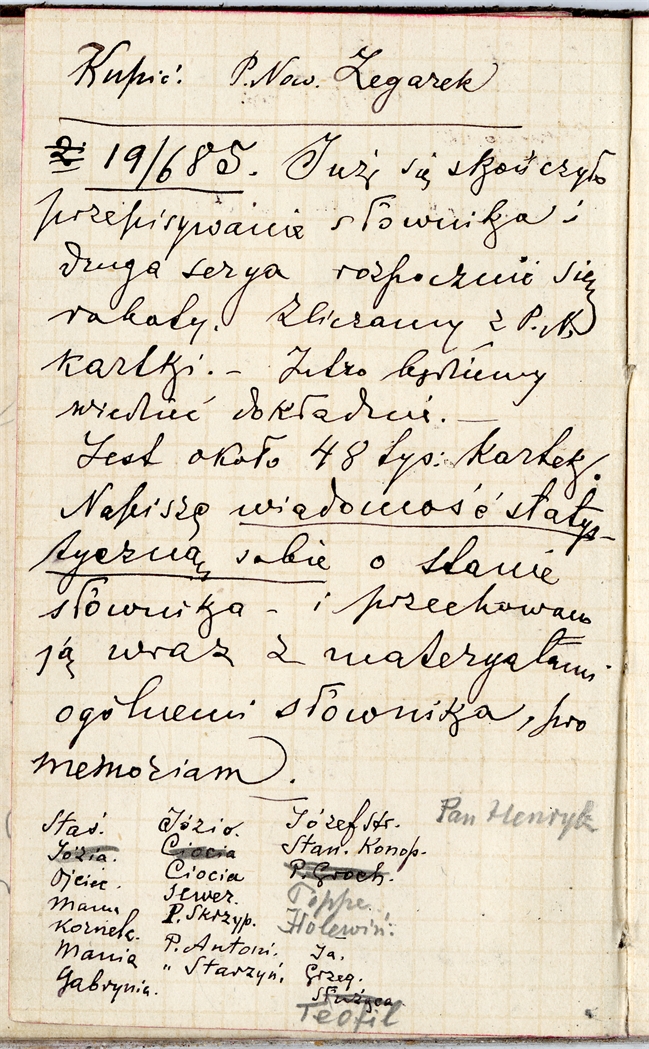 Kupić: P. Now. Zegarek
2. 19/6 85. Już się skończyło
przepisywanie słownika i
druga serya rozpocznie się
roboty. Zliczamy z P. N.
kartki. – Jutro będziemy
wiedzieć dokładnie. –
Jest około 48 tys. kartek.
Napiszę wiadomość staty-
styczną sobie o stanie
słownika – i przechowam
ją wraz z materyałami
ogólnemi słownika, pro
memoriam.
Staś. Józio. Józef str. Pan Henryk
Józia. Ciocia Stan. Konop.
Ojciec. Ciocia P. Groch.
Mama Sewer. Toppe.
Kornelk. P. Skrzyp. Holewiń.
Mania P. Antoni. Ja.
Gabrynia. " Starzyń. Grzeg.
Służąca
Teofil